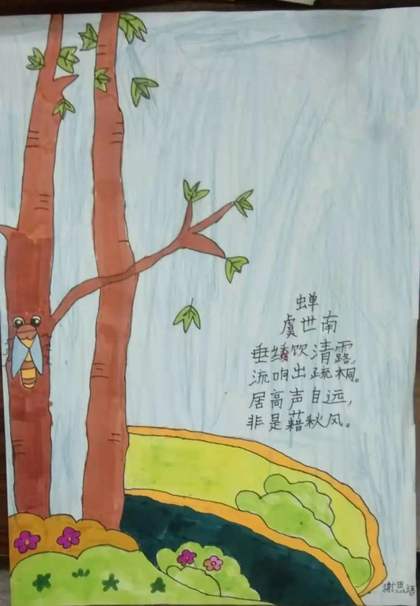 蝉
虞世南
垂緌饮清露,
流响出疏桐。
居高声自远,
非是藉秋风。
谢思